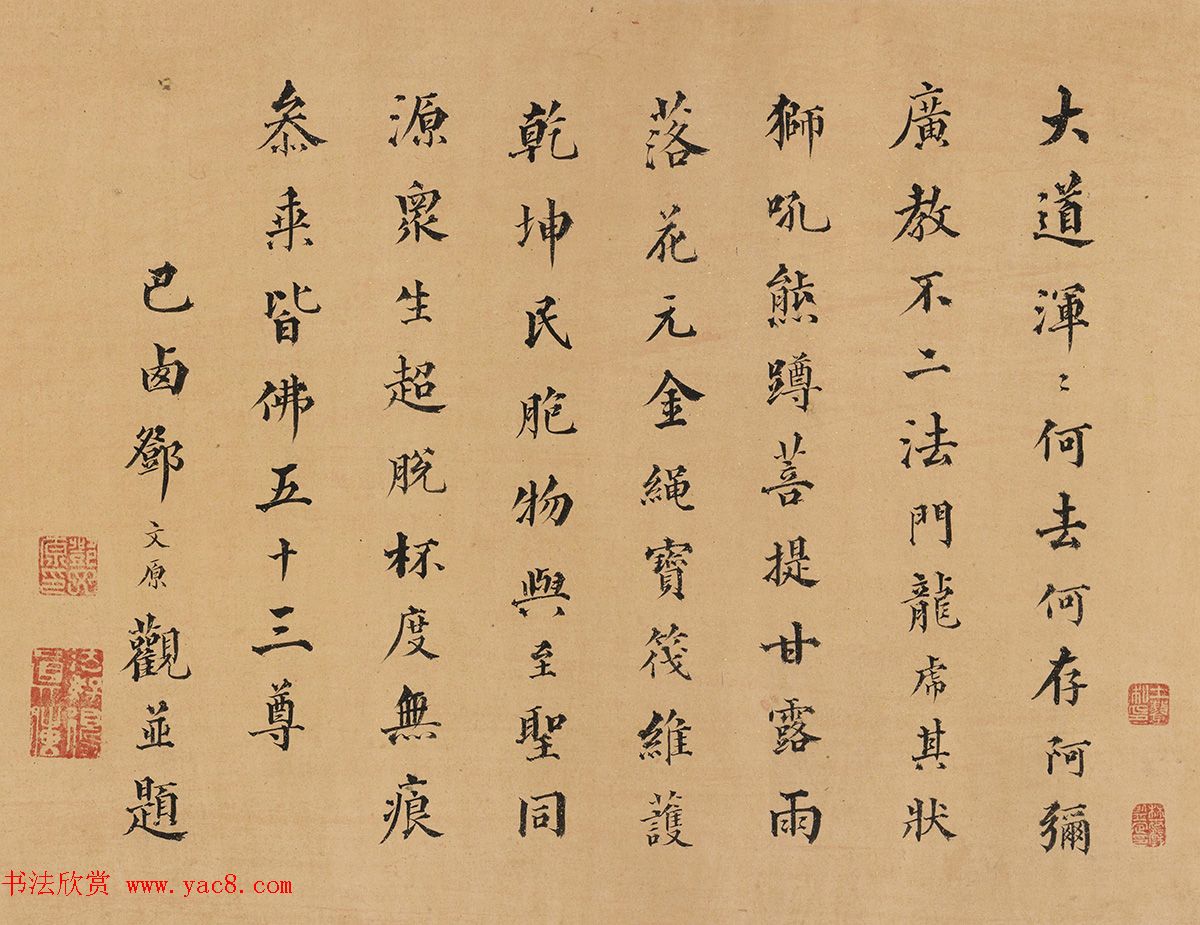 大道渾〻何去何存阿彌
廣教不二法門龍虎其狀
獅吼熊蹲菩提甘露雨
落花元金繩寶筏維護
乾坤民胞物與至聖同
源衆生超脫杯度無痕
叅乘皆佛五十三尊
巴西鄧文原觀並題
书法欣赏 www.yac8.com